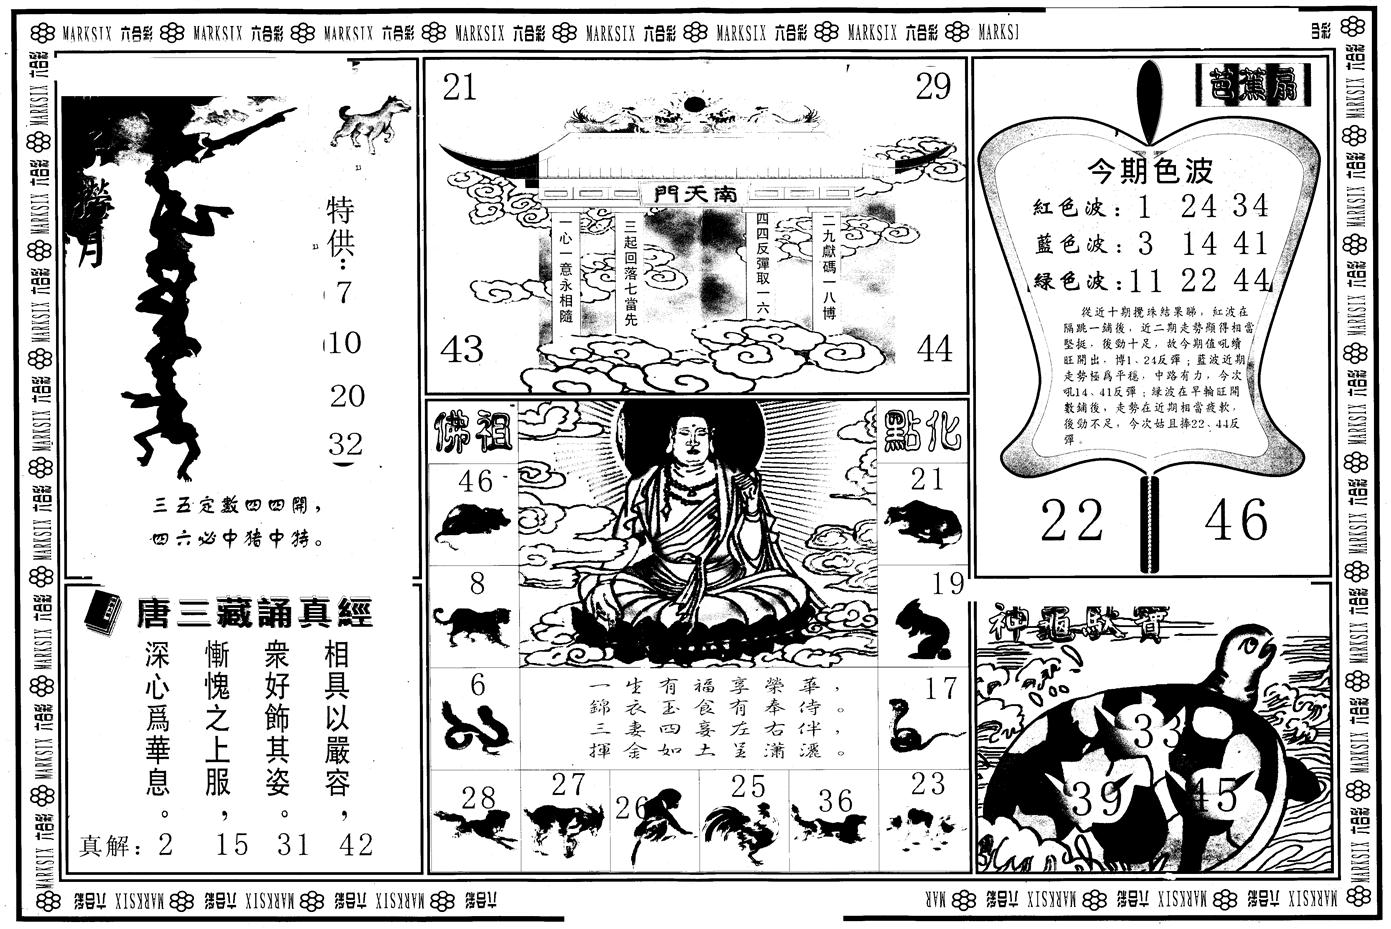 MARKSIX 六合彩 MARKSIX 六合彩 MARKSIX 六合彩 MARKSIX 六合彩 MARKSIX 六合彩 MARKSIX 六合彩 MARKSIX 六合彩
撈月
特供：
7
10
20
32
三五定數四四開，
四六必中猪中特。
21
29
南天門
二九獻碼一八博
四四反彈取一六
三起回落七當先
一心一意永相隨
43
44
芭蕉扇
今期色波
紅色波：1 24 34
藍色波：3 14 41
綠色波：11 22 44
從近十期攪珠結果睇，紅波在
隔跳一鋪後，近二期走勢顯得相當
堅挺，後勁十足，故今期值吼續
旺開出，博1、24反彈；藍波近期
走勢極爲平穩，中路有力，今次
吼14、41反彈；綠波在早輪旺開
數鋪後，走勢在近期相當疲軟，
後勁不足，今次姑且捧22、44反
彈。
22
46
佛祖
點化
46
21
8
19
6
17
一生有福享榮華，
錦衣玉食有奉侍。
三妻四妾左右伴，
揮金如土呈瀟灑。
28
27
26
25
36
23
唐三藏誦真經
相具以嚴容，
衆好飾其姿。
慚愧之上服，
深心爲華息。
真解：2 15 31 42
神龜馱寶
33
39
45